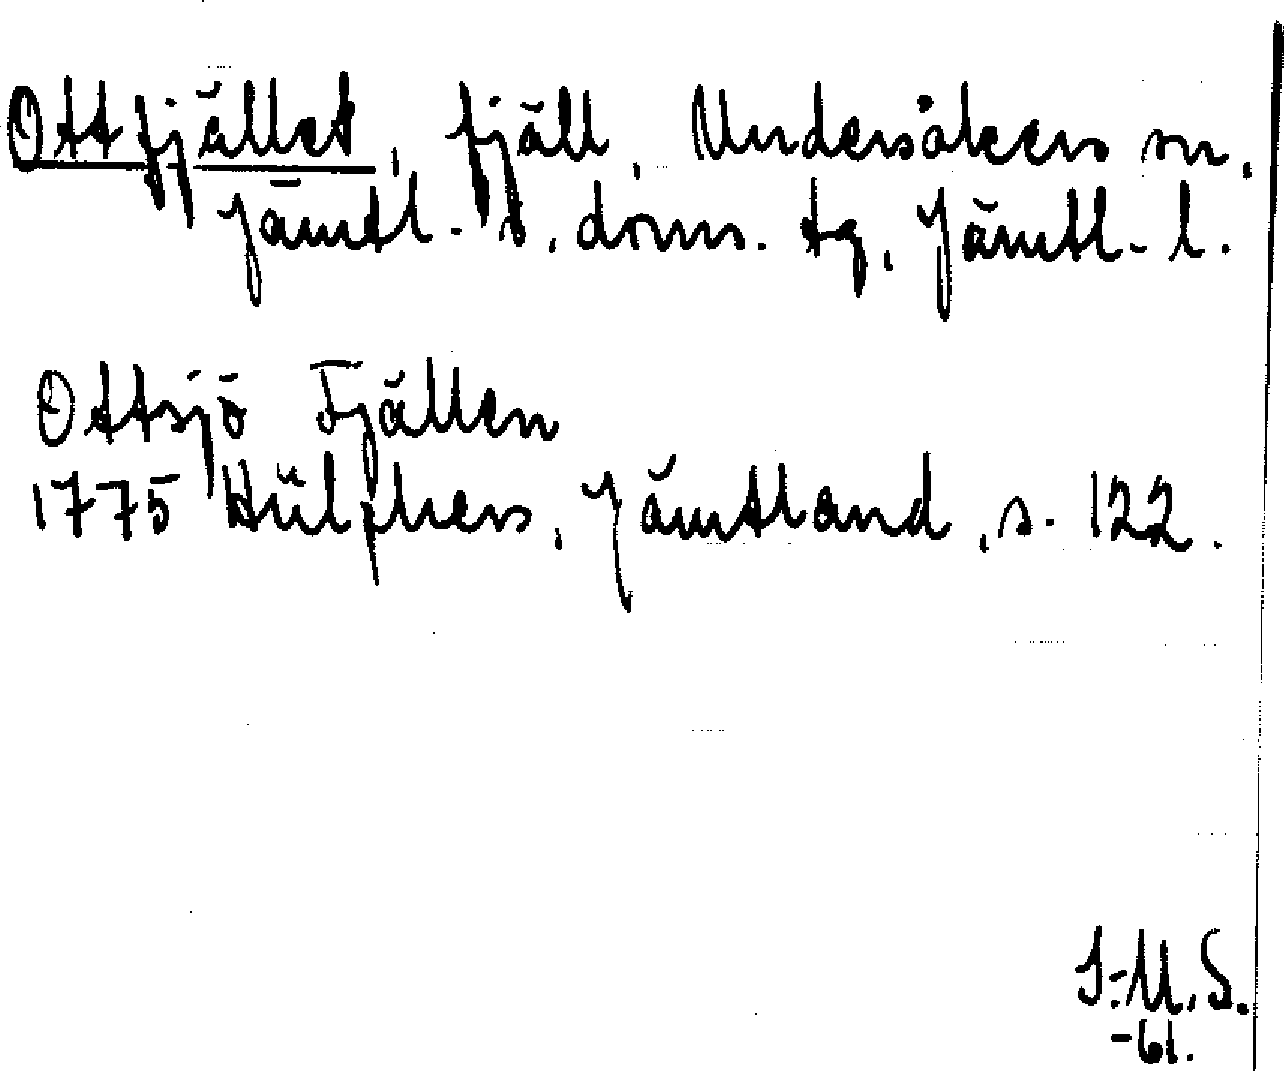 Ottfjället, fjäll, Undersåkers sn,
Jämtl. v. doms. tg, Jämtl. l.
Ottsjö Fjällen
1775 Hülphers, Jämtland, s. 122.
I.-M.S.
-61.